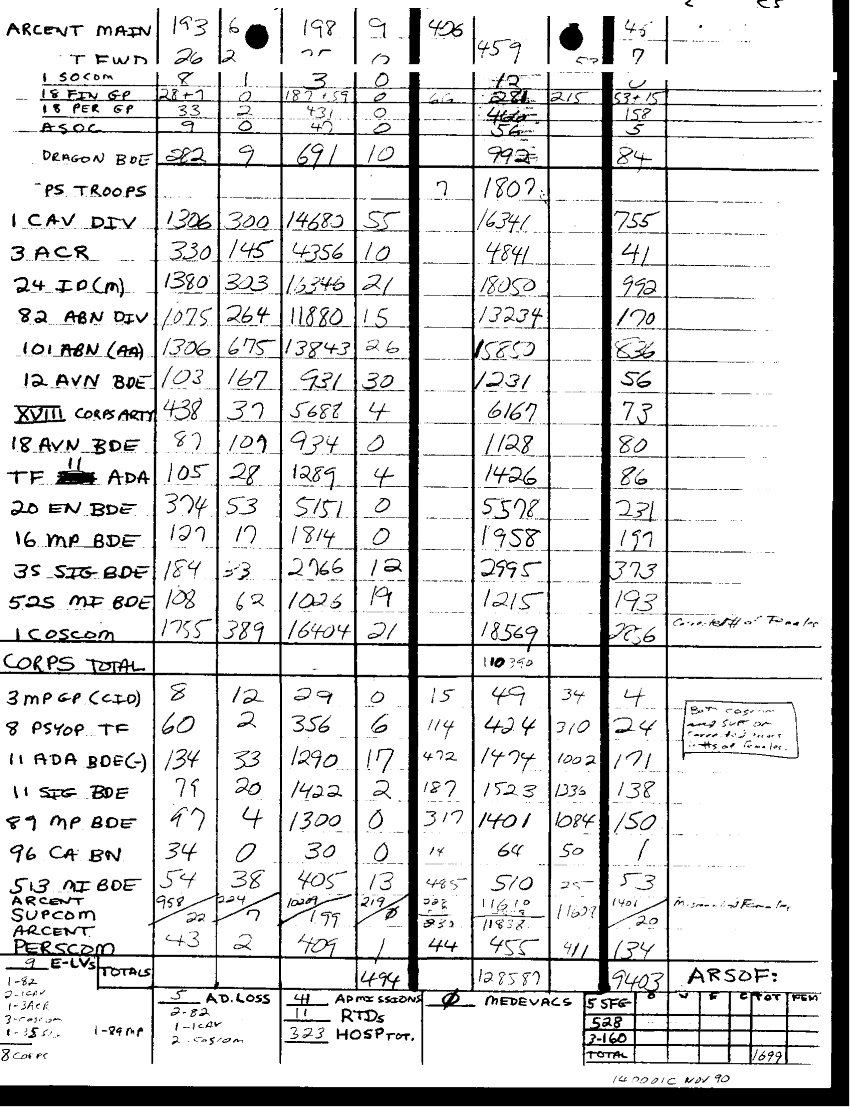 ARCENT MAIN 193 6 198 9 406 459 45
T FWD 26 2 7
1 SOCOM 8 1 3 0 12 0
18 FIN GP 28+7 0 187+59 0 66 281 215 53+15
18 PER GP 33 2 431 0 466 158
ASOC 9 0 47 0 56 5
DRAGON BDE 282 9 691 10 992 84
PS TROOPS 7 1807
1 CAV DIV 1306 300 14680 55 16341 755
3 ACR 330 145 4356 10 4841 41
24 ID(M) 1380 303 16346 21 18050 992
82 ABN DIV 1075 264 11880 15 13234 170
101 ABN (AA) 1306 675 13843 26 15850 836
12 AVN BDE 103 167 931 30 1231 56
XVIII CORPS ARTY 438 37 5688 4 6167 73
18 AVN BDE 87 107 934 0 1128 80
TF 11 ADA 105 28 1289 4 1426 86
20 EN BDE 374 53 5151 0 5578 231
16 MP BDE 127 17 1814 0 1958 197
35 SIG BDE 184 33 2766 12 2995 373
525 MI BDE 108 62 1026 19 1215 193
1 COSCOM 1755 389 16404 21 18569 2256 Corrected # of Females
CORPS TOTAL 110390
3 MP GP (CID) 8 12 29 0 15 49 34 4
Both coscom
and SUPCOM
corrected
#s of females.
8 PSYOP TF 60 2 356 6 114 424 310 24
11 ADA BDE(-) 134 33 1290 17 472 1474 1002 171
11 SIG BDE 79 20 1422 2 187 1523 1336 138
89 MP BDE 97 4 1300 0 317 1401 1084 150
96 CA BN 34 0 30 0 14 64 50 1
513 MI BDE 54 38 405 13 485 510 25 53
ARCENT SUPCOM 958/22 224/7 10209/199 219/0 11610 11838 1401/20 Females
ARCENT PERSCOM 43 2 409 1 44 455 411 134
9 E-LVs TOTALS 494 128587 9403 ARSOF:
1-82
2-1CAV
1-3ACR
3-COSCOM
1-35 SIG 1-89 MP
8 CORPS
5 AD.LOSS
2-82
1-1CAV
2-COSCOM
41 ADMISSIONS
11 RTDs
323 HOSP TOT.
0 MEDEVACS
5 SFG O W E C TOT FEM
528
3-160
TOTAL 1699
140001C NOV 90